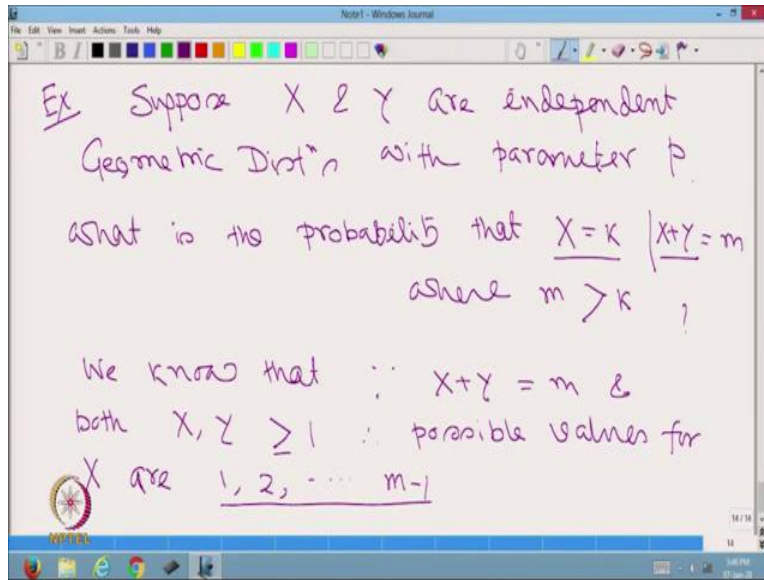 Note1 - Windows Journal
File Edit View Insert Actions Tools Help
Ex Suppose X & Y are independent
Geometric Distⁿ with parameter p
what is the probability that X = K | X+Y = m
where m > K ?
We know that ∵ X+Y = m &
both X, Y ≥ 1 ∴ possible values for
X are 1, 2, ---- m-1
NPTEL
14 / 14
14